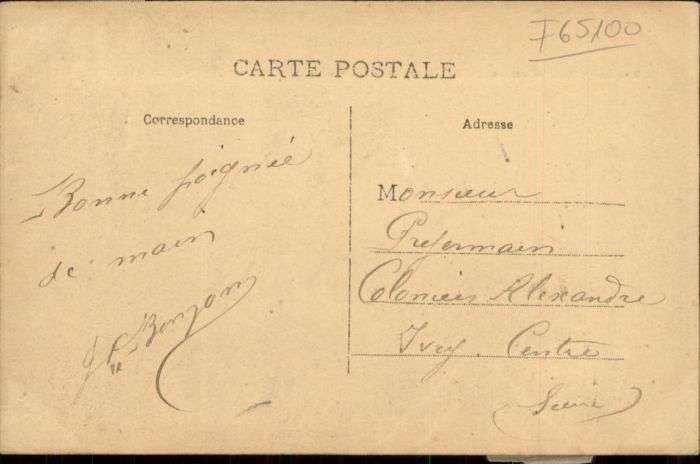 F65100
CARTE POSTALE
Correspondance
Bonne poignée
de main
Bonzom
Adresse
Monsieur
Prefermain
Alexandre
Ivry. Centre
Seine